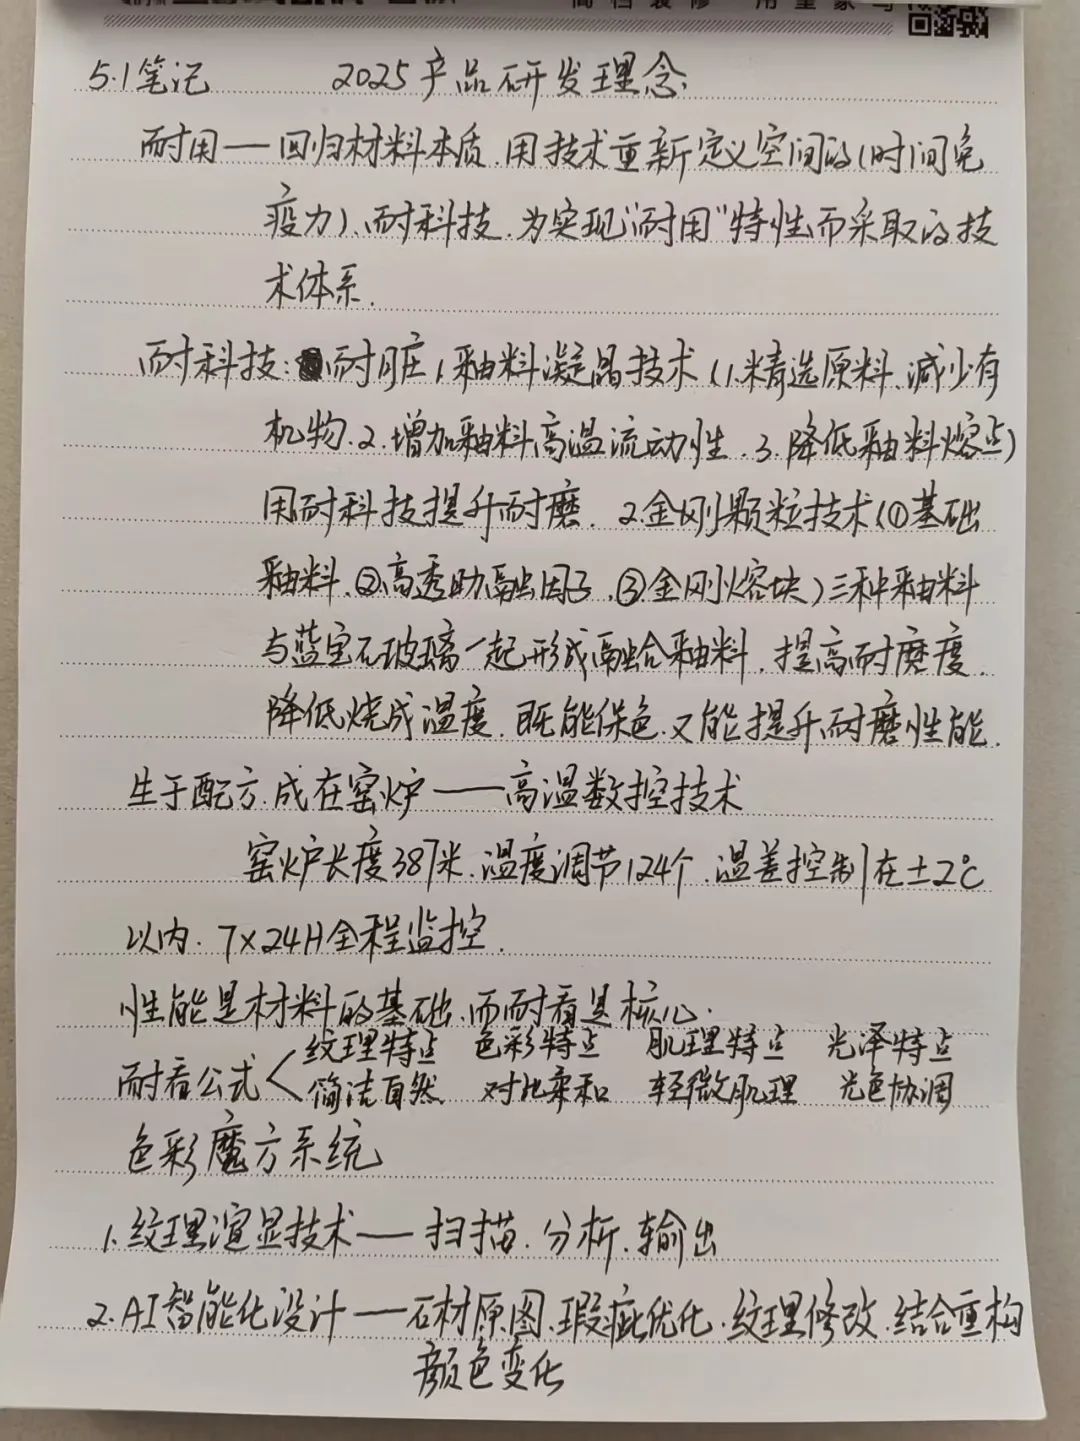 高档装修 用皇家
5.1笔记 2025产品研发理念:
耐用——回归材料本质.用技术重新定义空间的(时间免
疫力)、耐科技.为实现“耐用”特性而采取的技
术体系.
耐科技: 耐脏1.釉料凝晶技术(1.精选原料、减少有
机物.2.增加釉料高温流动性.3.降低釉料熔点)
用耐科技提升耐磨. 2.金刚颗粒技术(①基础
釉料.②高透助融因子.③金刚熔块)三种釉料
与蓝宝石玻璃一起形成融合釉料.提高耐磨度.
降低烧成温度.既能保色.又能提升耐磨性能.
生于配方.成在窑炉——高温数控技术
窑炉长度387米.温度调节124个.温差控制在±2℃
以内. 7×24H全程监控.
性能是材料的基础.而耐看是核心.
纹理特点 色彩特点 肌理特点 光泽特点
耐看公式< 简洁自然 对比柔和 轻微肌理 光色协调
色彩魔方系统
1.纹理渲显技术——扫描.分析.输出
2.AI智能化设计——石材原图.瑕疵优化.纹理修改.结合重构
颜色变化